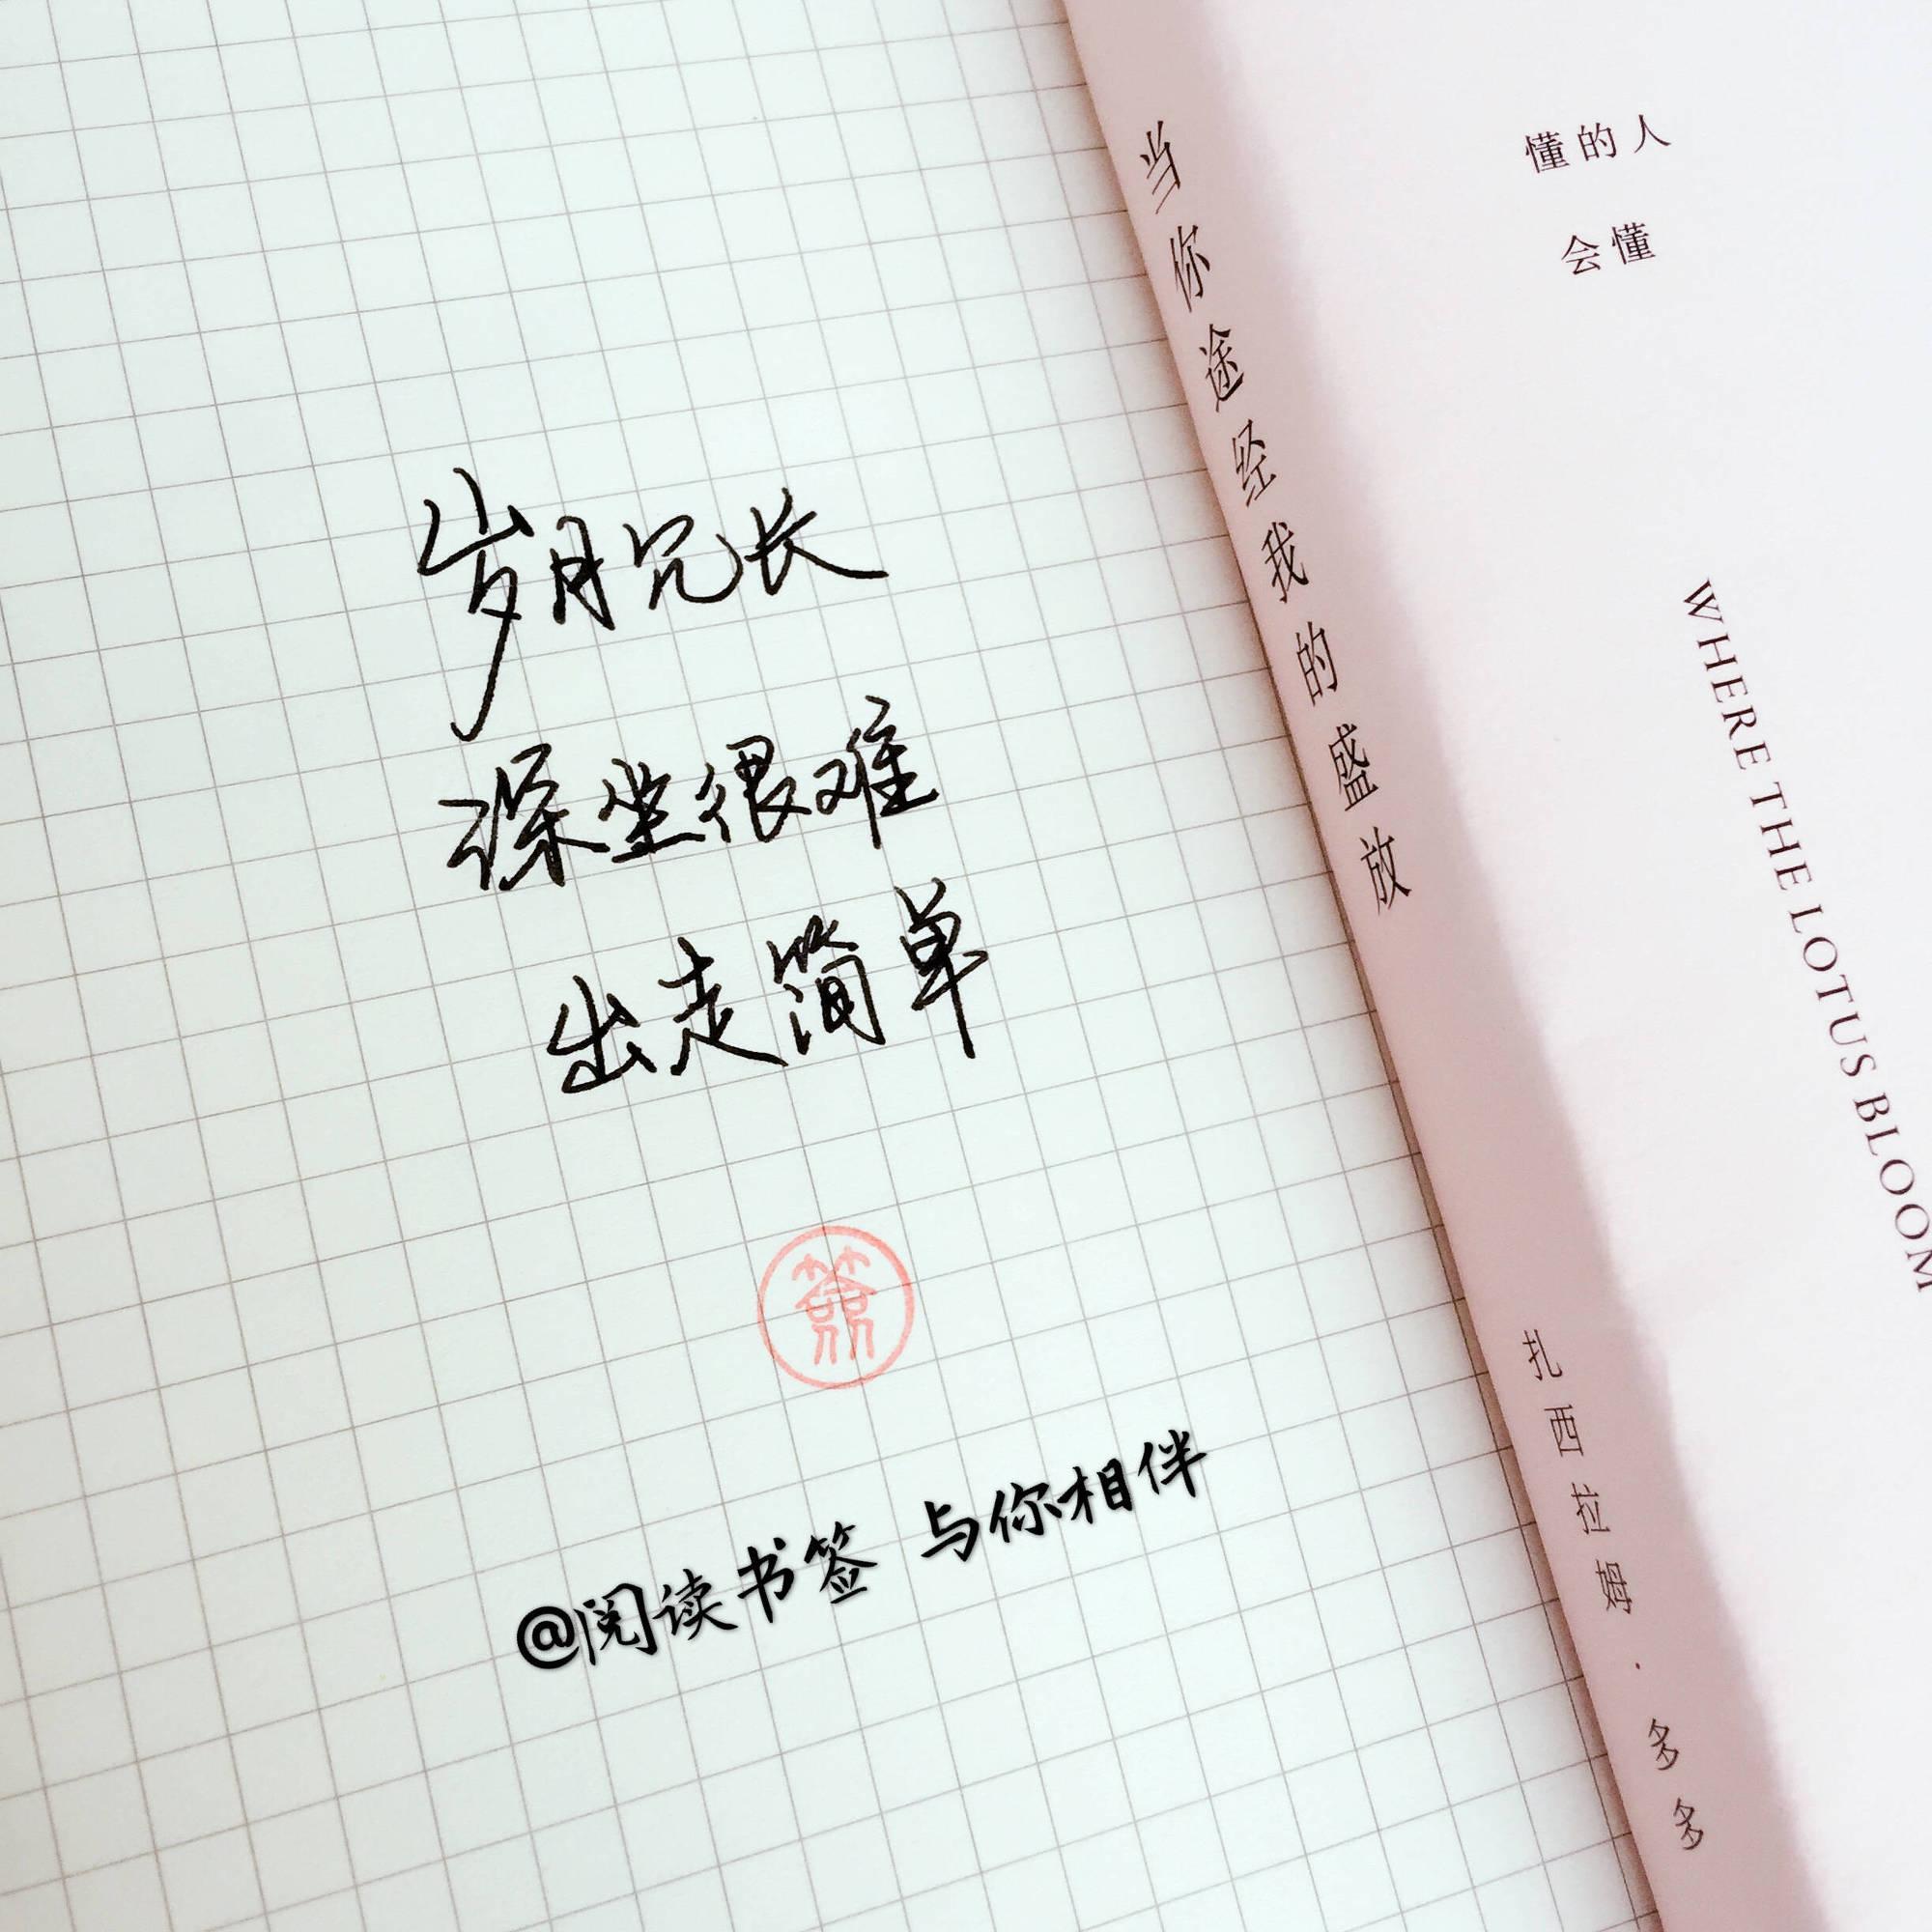 岁月冗长
深坐很难
出走简单
@阅读书签 与你相伴
当你途经我的盛放
扎西拉姆·多多
懂的人
会懂
WHERE THE LOTUS BLOOM